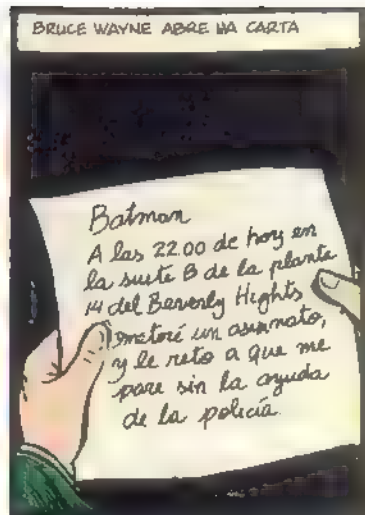 BRUCE WAYNE ABRE UNA CARTA
Batman
A las 22.00 de hoy en
la suite B de la planta
14 del Beverly Hights
cometeré un asesinato,
y le reto a que me
pare sin la ayuda
de la policía.